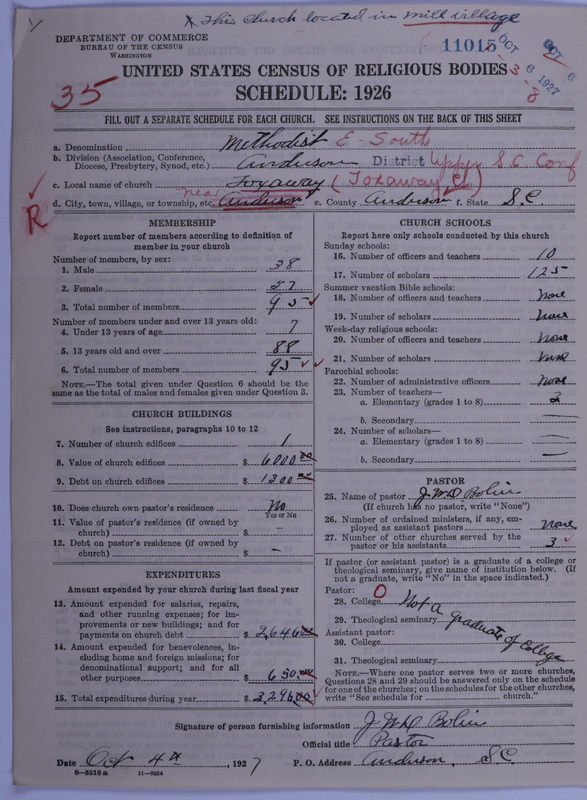 X This church located in mill village
DEPARTMENT OF COMMERCE
BUREAU OF THE CENSUS
WASHINGTON
11015
OCT 6 1927
OCT 6
3-8
UNITED STATES CENSUS OF RELIGIOUS BODIES
35
SCHEDULE: 1926
FILL OUT A SEPARATE SCHEDULE FOR EACH CHURCH. SEE INSTRUCTIONS ON THE BACK OF THIS SHEET
a. Denomination Methodist E-South
b. Division (Association, Conference, Diocese, Presbytery, Synod, etc.) Anderson District Upper S C Conf
c. Local name of church Toxaway (Toxaway Ch)
R
d. City, town, village, or township, etc. near Anderson e. County Anderson f. State S.C.
MEMBERSHIP
Report number of members according to definition of
member in your church
Number of members, by sex:
1. Male 38
2. Female 57
3. Total number of members 95
Number of members under and over 13 years old:
4. Under 13 years of age 7
5. 13 years old and over 88
6. Total number of members 95
NOTE.—The total given under Question 6 should be
same as the total of males and females given under Question 3.
CHURCH BUILDINGS
See instructions, paragraphs 10 to 12
7. Number of church edifices 1
8. Value of church edifices $ 6000.00
9. Debt on church edifices $ 1300.00
10. Does church own pastor's residence No
Yes or No
11. Value of pastor's residence (if owned by
church) $
12. Debt on pastor's residence (if owned by
church) $ —
EXPENDITURES
Amount expended by your church during last fiscal year
13. Amount expended for salaries, repairs,
and other running expenses; for im-
provements or new buildings; and for
payments on church debt $ 2,646.00
14. Amount expended for benevolences, in-
cluding home and foreign missions; for
denominational support; and for all
other purposes $ 650.00
15. Total expenditures during year $ 3,296.00
CHURCH SCHOOLS
Report here only schools conducted by this church
Sunday schools:
16. Number of officers and teachers 10
17. Number of scholars 125
Summer vacation Bible schools:
18. Number of officers and teachers none
19. Number of scholars none
Week-day religious schools:
20. Number of officers and teachers none
21. Number of scholars none
Parochial schools:
22. Number of administrative officers none
23. Number of teachers—
a. Elementary (grades 1 to 8)
b. Secondary —
24. Number of scholars—
a. Elementary (grades 1 to 8) —
b. Secondary —
PASTOR
25. Name of pastor J. W. D. Bolin
(If church has no pastor, write "None")
26. Number of ordained ministers, if any, em-
ployed as assistant pastors none
27. Number of other churches served by the
pastor or his assistants 3
If pastor (or assistant pastor) is a graduate of a college or
theological seminary, give name of institution below. (If
not a graduate, write "No" in the space indicated.)
Pastor: O
28. College Not a graduate of College
29. Theological seminary
Assistant pastor:
30. College
31. Theological seminary
NOTE.—Where one pastor serves two or more churches,
Questions 28 and 29 should be answered only on the schedule
for one of the churches; on the schedules for the other churches,
write "See schedule for church."
Signature of person furnishing information J W D Bolin
Official title Pastor
Date Oct 4th, 1927 P. O. Address Anderson, S.C.
8—5518 a 11—9054